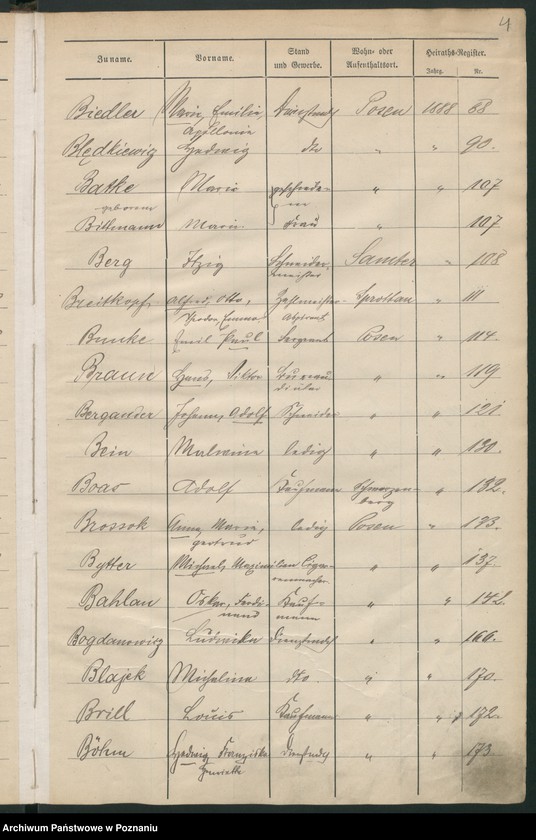 4
Zuname. Vorname. Stand und Gewerbe. Wohn- oder Aufenthaltsort. Heiraths-Register.
Jahrg. Nr.
Biedler Marie, Emilie, Apollonie Dienstmdch Posen 1888 68
Błędkiewicz Hedwig dto " " 90.
Batke Marie geschiedene " " 107
geborene
Bittmann Marie Frau " 107
Berg Itzig Schneidermeister Samter " 108
Breitkopf Alfred, Otto, Theodor, Zahlmeister- Aspirant Sprottau " 111
Emil Paul Sergeant Posen " 114.
Braun Hans, " " 119
Bergander Johann, Adolf Schneider " " 121
Bein Malwine ledig " " 130.
Boas Adolf Kaufmann Schwarzenberg " 132.
Brossok Anna, Marie, Gertrud ledig Posen "
Bytter Michael, Maximilian Cigarrenmacher " " 137.
Bahlau Oskar, Ferdinand Kaufmann " " 142.
Bogdanowicz Ludwika Dienstmdch " " 166.
Blajek Michalina dto " " 170.
Brill Louis Kaufmann " " 172.
Böhm Hedwig Franziska Henriette Dienstmdch " " 173.
Archiwum Państwowe w Poznaniu